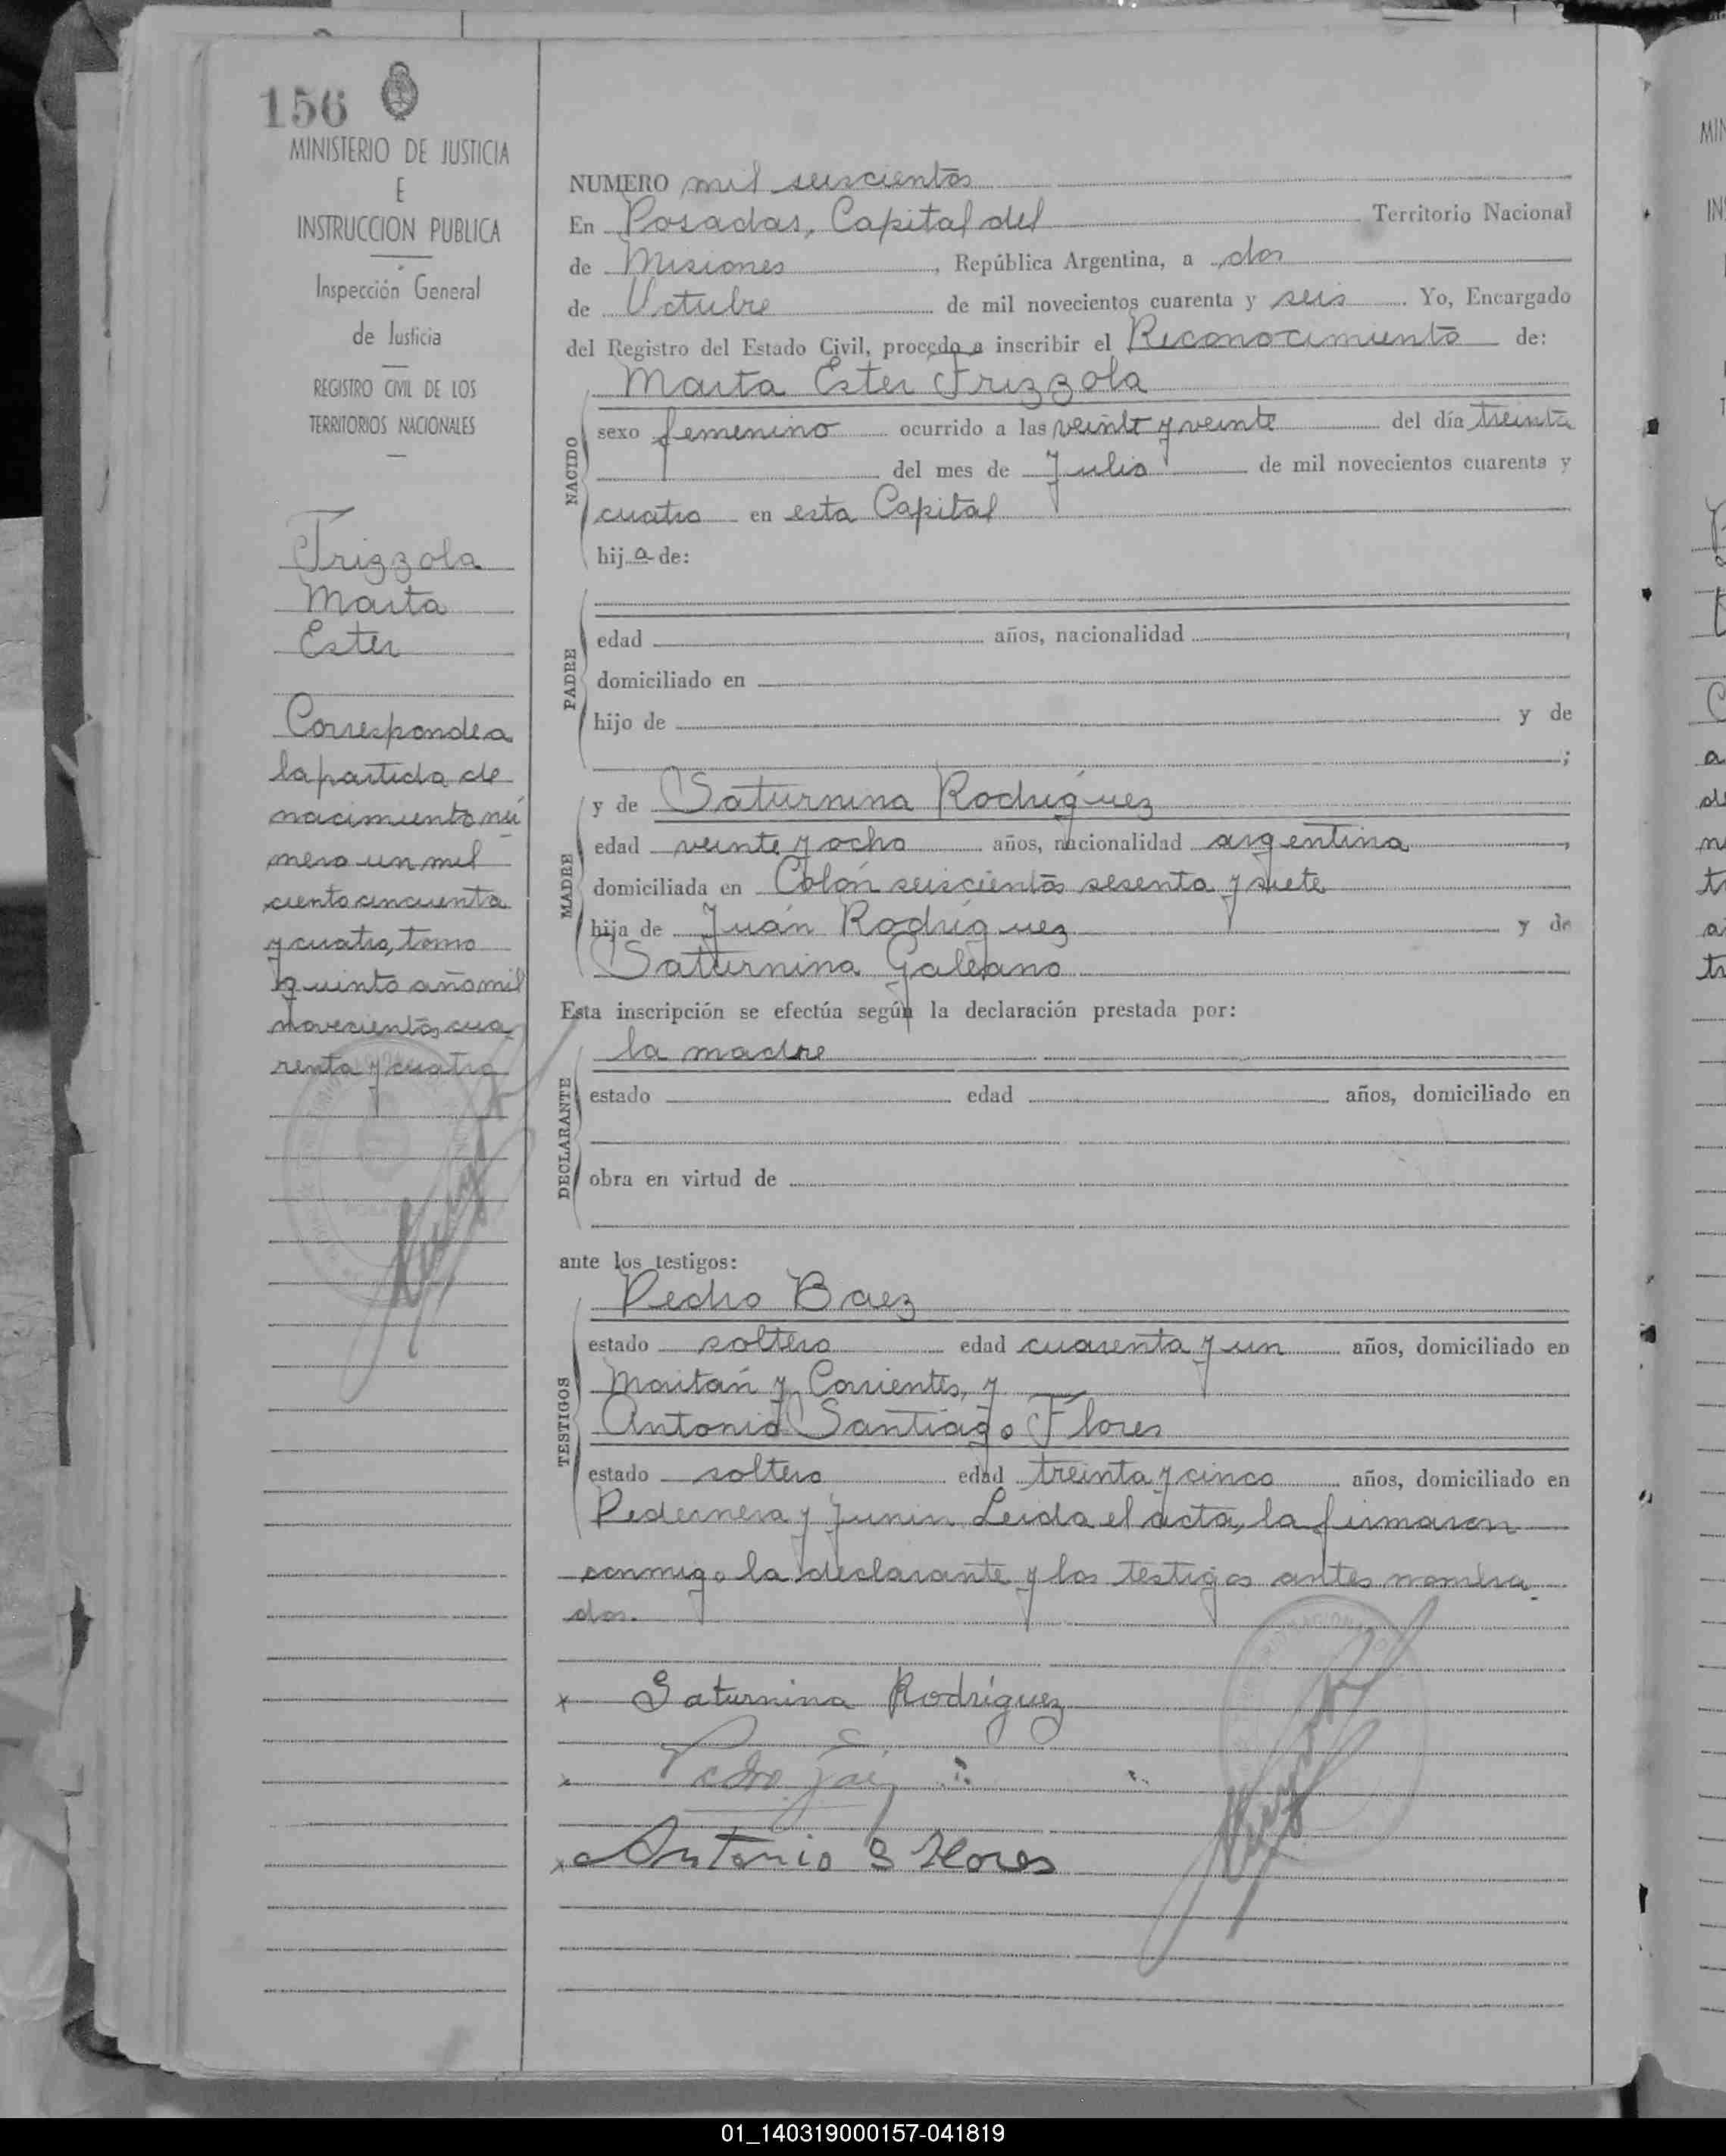 156
MINISTERIO DE JUSTICIA
E
INSTRUCCION PUBLICA
Inspección General
de Justicia
REGISTRO CIVIL DE LOS
TERRITORIOS NACIONALES
Frizzola
Marta
Ester
Corresponde a
la partida de
nacimiento nú
mero un mil
ciento cincuenta
y cuatro, tomo
quinto año mil
novecientos cua
renta y cuatro
NUMERO mil seiscientos
En Posadas, Capital del Territorio Nacional
de Misiones, República Argentina, a dos
de Octubre de mil novecientos cuarenta y seis. Yo, Encargado
del Registro del Estado Civil, procedo a inscribir el Reconocimiento de:
Marta Ester Frizzola
NACIDO
sexo femenino ocurrido a las veinte y veinte del día treinta
del mes de Julio de mil novecientos cuarenta y
cuatro en esta Capital
hija de:
PADRE
edad años, nacionalidad ,
domiciliado en
hijo de y de
;
MADRE
y de Saturnina Rodríguez
edad veinte y ocho años, nacionalidad argentina,
domiciliada en Colón seiscientos sesenta y siete
hija de Juán Rodríguez y de
Saturnina Galeano
Esta inscripción se efectúa según la declaración prestada por:
la madre
DECLARANTE
estado edad años, domiciliado en
obra en virtud de
ante los testigos:
Pedro Baez
TESTIGOS
estado soltero edad cuarenta y un años, domiciliado en
Maitán y Corrientes, y
Antonio Santiago Flores
estado soltero edad treinta y cinco años, domiciliado en
Pedernera y Junin. Leida el acta, la firmaron
conmigo la declarante y los testigos antes nombra
dos.
x Saturnina Rodríguez
x Pedro Baez
x Antonio S Flores
01_140319000157-041819